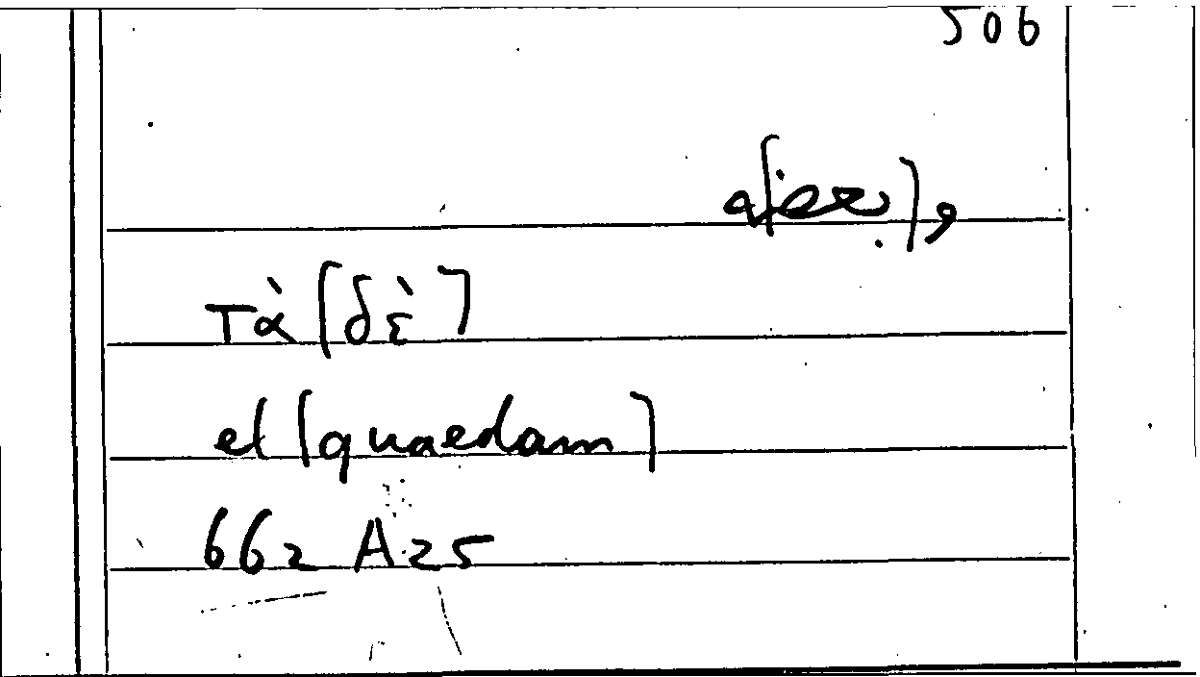 506
τὰ [δὲ]
et [quaedam]
662 A25